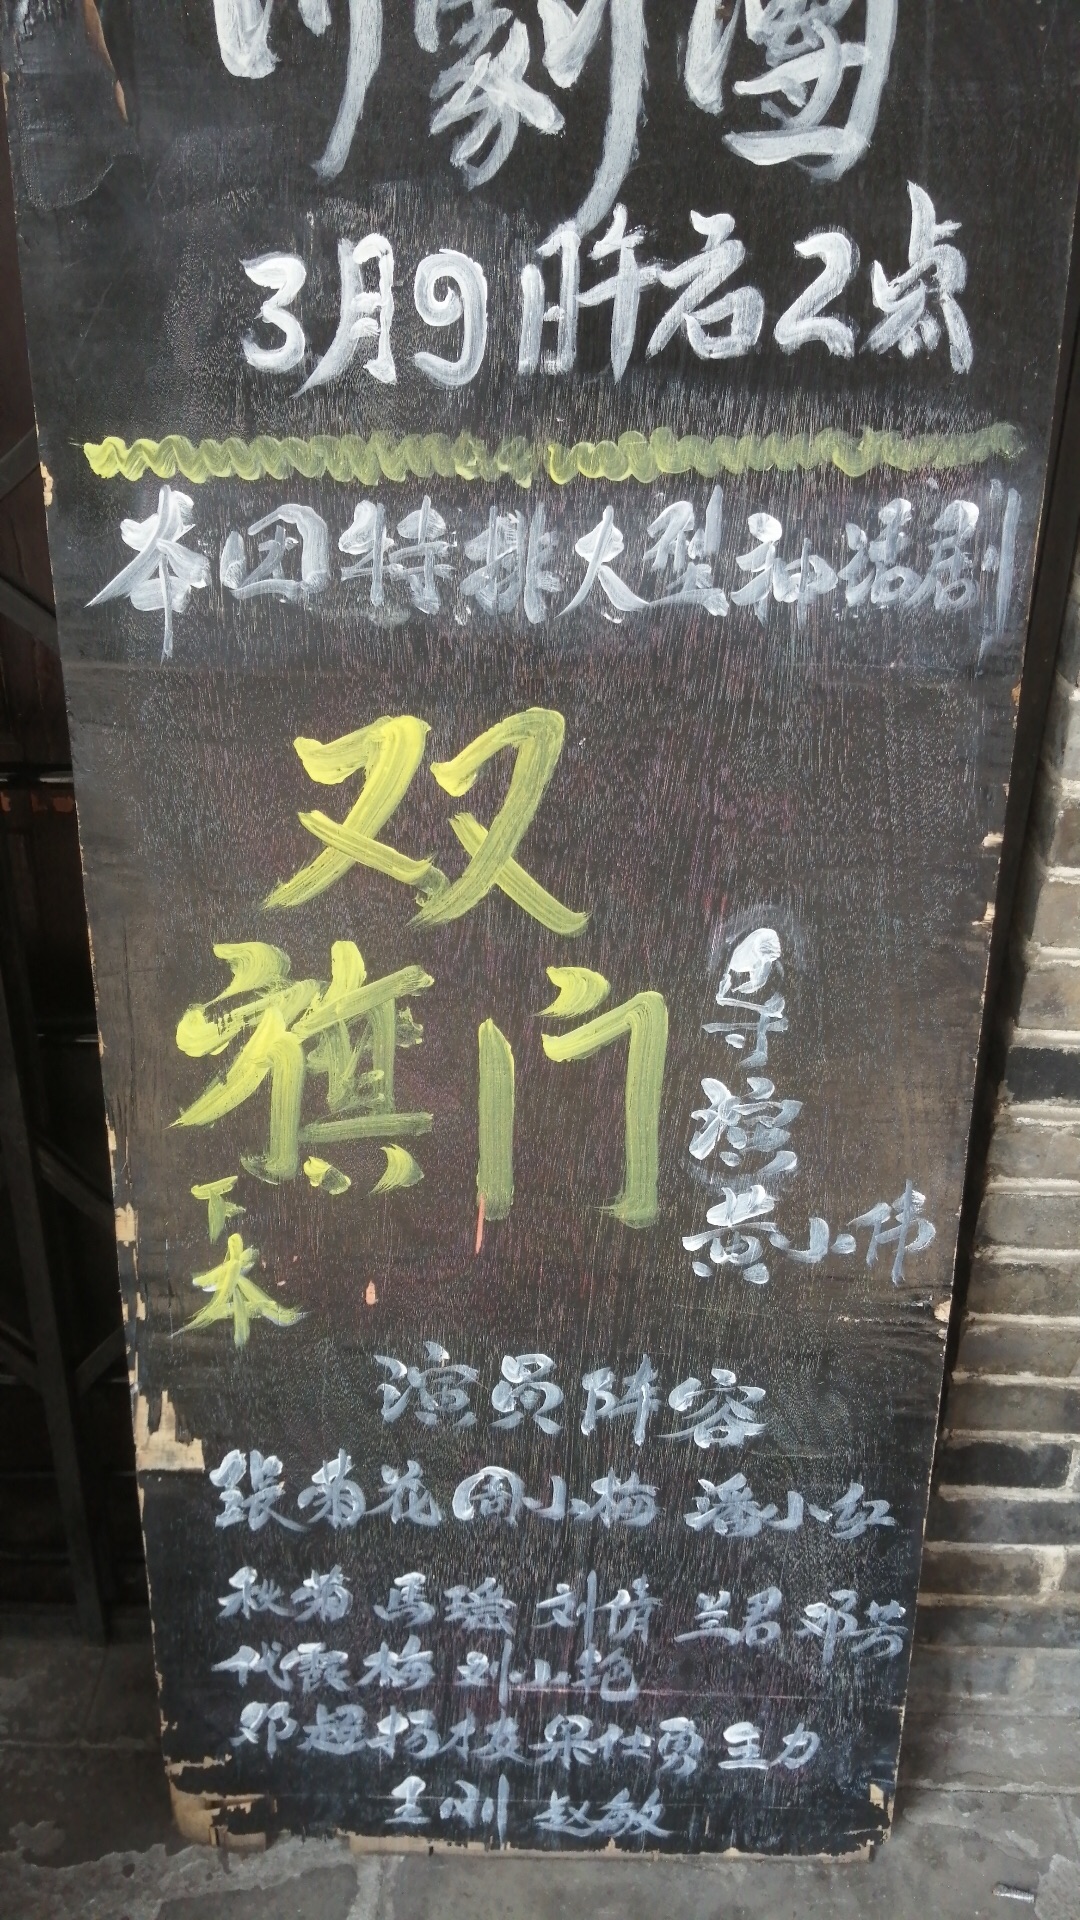 川剧团
3月9日午后2点
本团特排大型神话剧
双
旗门
下本
导演
黄小伟
演员阵容
张菊花 周小梅 潘小红
秋菊 馬瑞 刘倩 兰君 邓芳
代霞梅 刘小艳
邓超 杨枝 梁仕勇 主力
王刚 赵敏